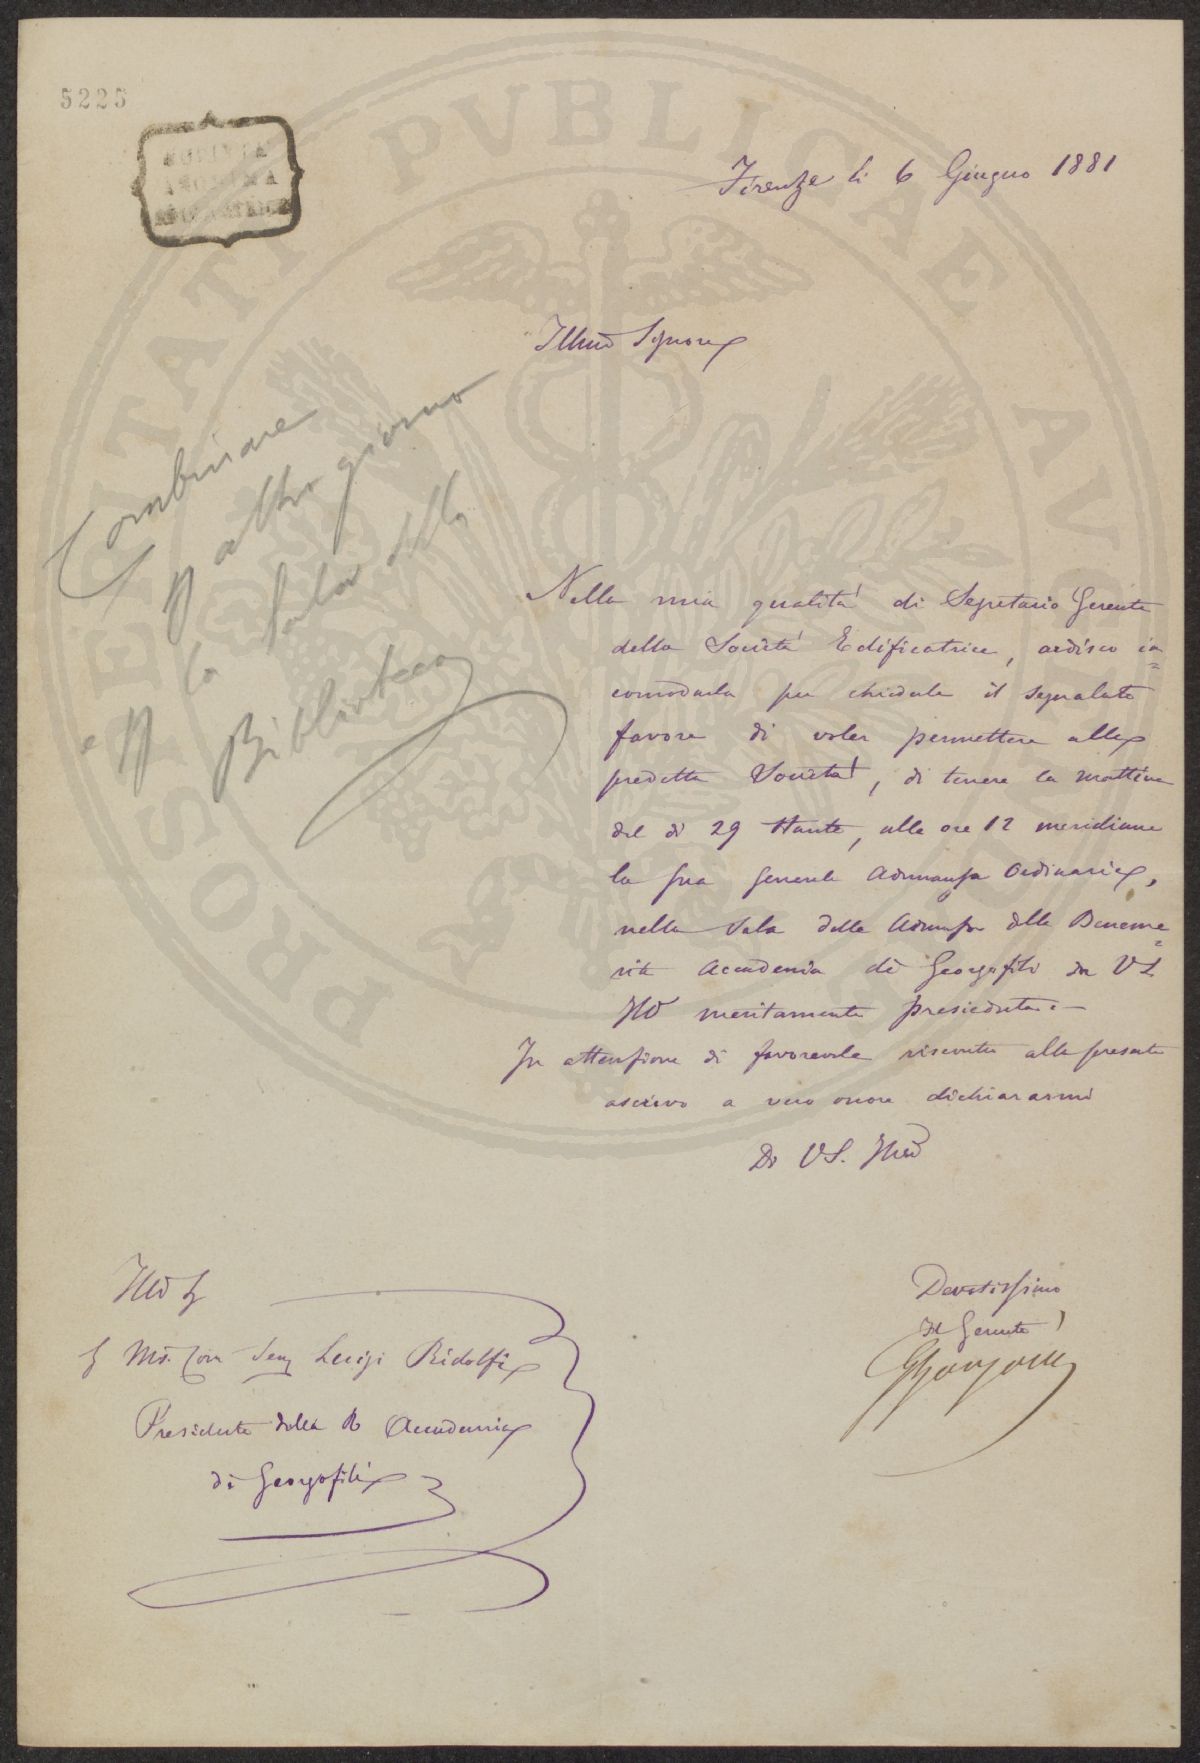 5225
SOCIETÀ
ANONIMA
EDIFICATRICE
PROSPERITATI PVBLICAE AVGENDAE
Firenze li 6 Giugno 1881
Illmo Signore
Combinare
p altro giorno
e p la Sala della
Biblioteca
Nella mia qualità di Segretario Gerente
della Società Edificatrice, ardisco in=
comodarla per chiederle il segnalato
favore di voler permettere alla
predetta Società, di tenere la mattina
del dì 29 stante, alle ore 12 meridiane
la sua generale Adunanza Ordinaria,
nella Sala delle Adunze della Beneme=
rita Accademia dei Georgofili da VS
Illma meritamente presieduta.—
In attenzione di favorevole riscontro alla presente
ascrivo a vero onore dichiararmi
Di VS. Illma
Devotissimo
Il Gerente
Illmo Sig
Sig Ms. Com Sen Luigi Ridolfi
Presidente della R Accademia
dei Georgofili